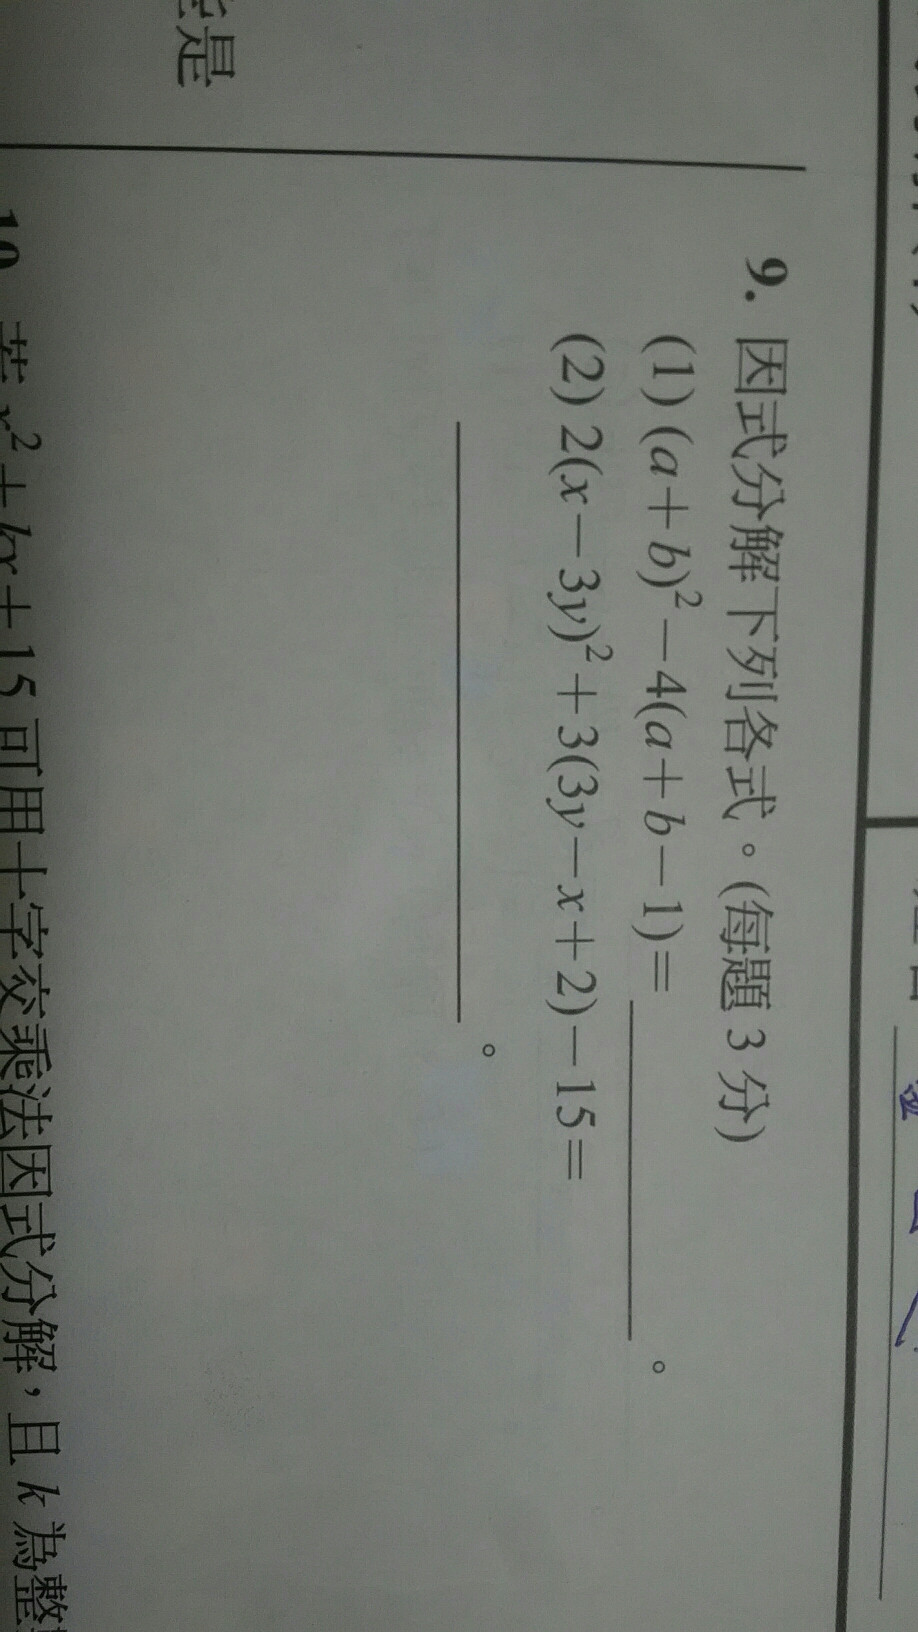 是
9. 因式分解下列各式。(每題 3 分)
(1) (a+b)²−4(a+b−1)=＿＿＿＿＿＿。
(2) 2(x−3y)²+3(3y−x+2)−15=
＿＿＿＿＿＿＿＿＿＿。
10. 若 x²+kx+15 可用十字交乘法因式分解，且 k 為整